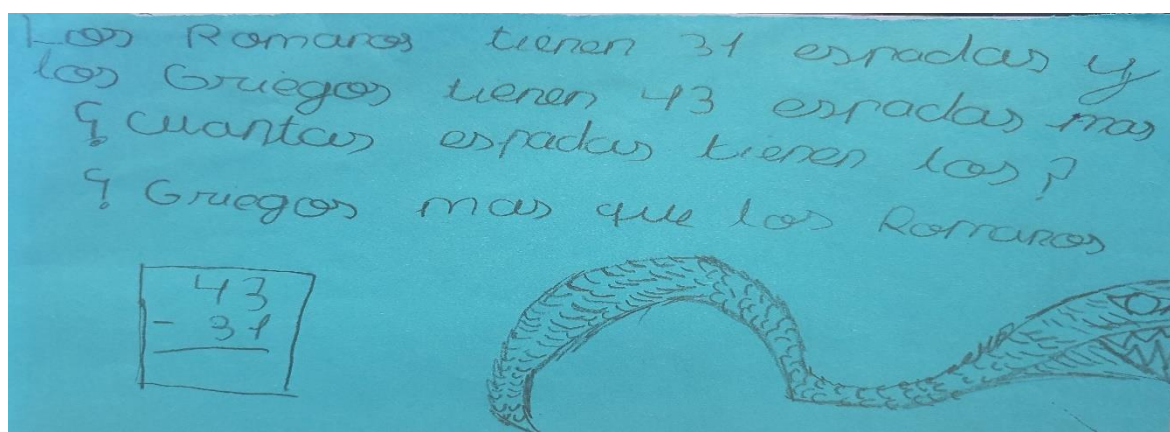 Los Romanos tienen 31 espadas y
los Griegos tienen 43 espadas mas
¿cuantas espadas tienen los?
¿Griegos mas que los Romanos
43
- 31